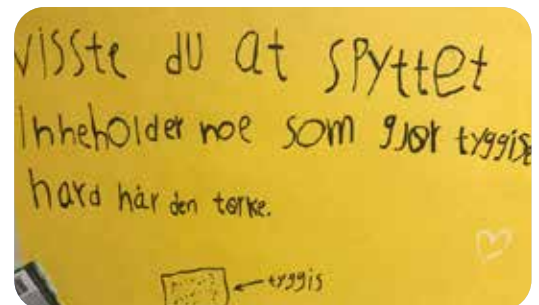 visste du at spyttet
Inneholder noe som gjør tyggise
hard når den tørke.
tyggis